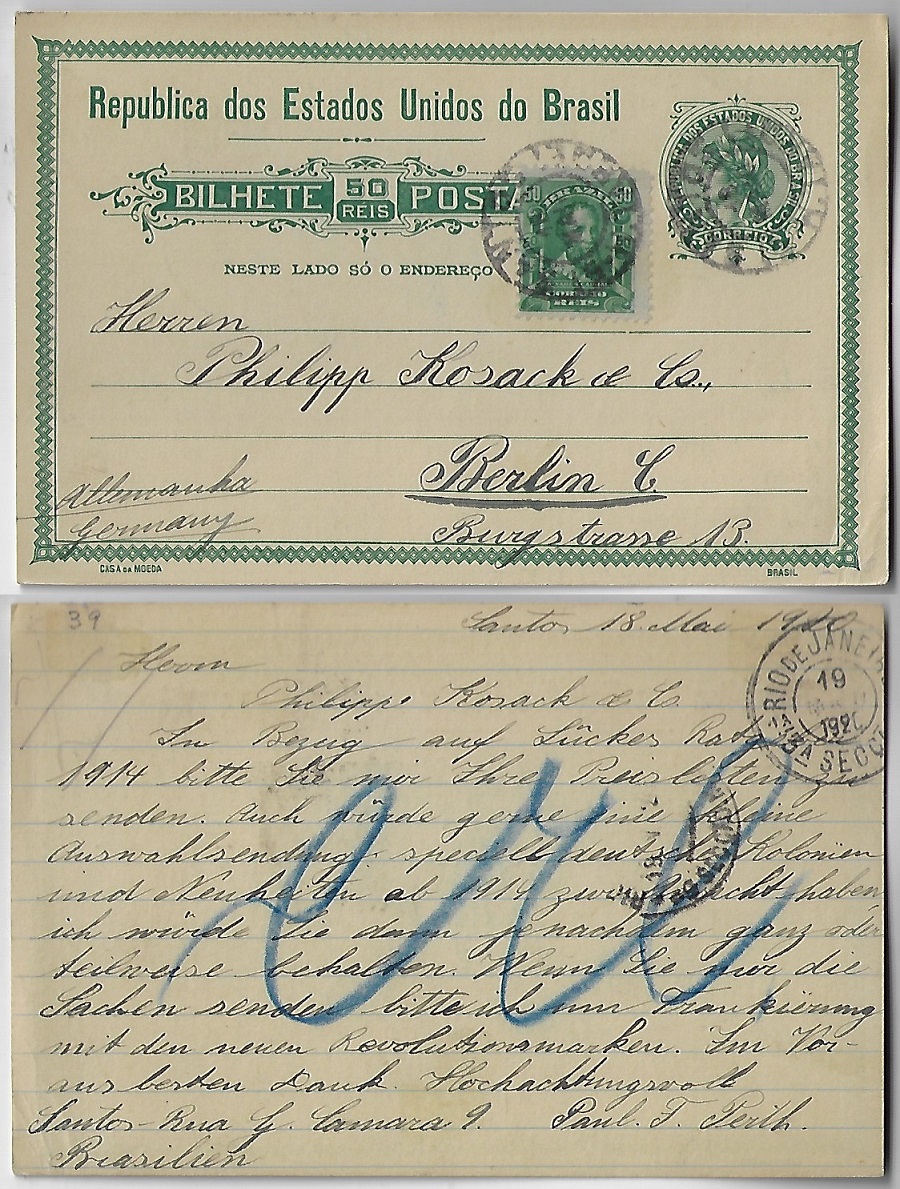 Republica dos Estados Unidos do Brasil
REPUBLICA DOS ESTADOS UNIDOS DO BRASIL
CORREIO
BILHETE 50 REIS POSTA
NESTE LADO SÓ O ENDEREÇO
50 50
CORREIO
REIS
Herren
Philipp Kosack & Co.,
Berlin C
Burgstrasse 13.
Allemanha
Germany
CASA DA MOEDA
BRASIL
39
Santos 18. Mai 1920
RIO DE JANEIRO
19
1920
5A SECÇ
Herrn
Philipp Kosack & C.
In Bezug auf Lücker
1914 bitte Sie mir Ihre Preislisten zu
senden. Auch würde gerne eine kleine
Auswahlsendung speciell deutsche Kolonien
und Neuheiten ab 1914 haben
ich würde Sie dann jenachdem ganz oder
teilweise behalten. Wenn Sie mir die
Sachen senden bitte ich um Frankierung
mit den neuen Revolutionsmarken. Im Vor-
aus besten Dank. Hochachtungsvoll
Santos Rua G. Camara 9. Paul. F. Perth.
Brasilien